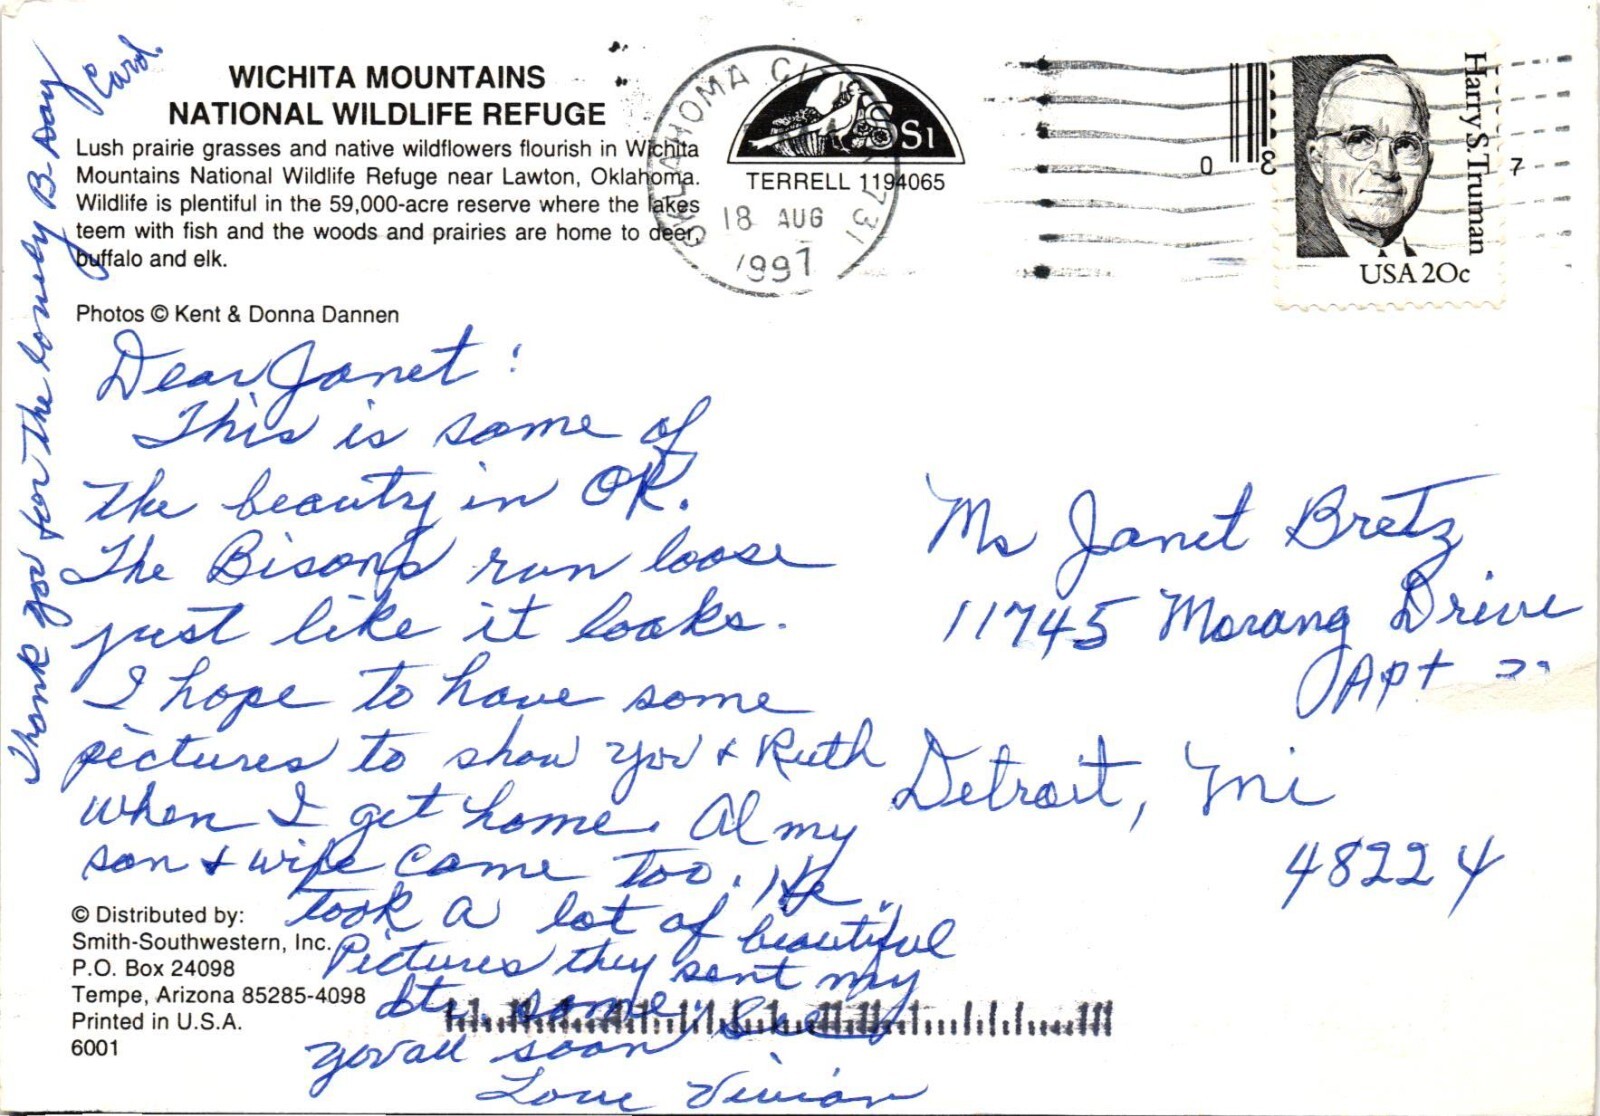 WICHITA MOUNTAINS
NATIONAL WILDLIFE REFUGE
Lush prairie grasses and native wildflowers flourish in Wichita
Mountains National Wildlife Refuge near Lawton, Oklahoma.
Wildlife is plentiful in the 59,000-acre reserve where the lakes
teem with fish and the woods and prairies are home to deer,
buffalo and elk.
Photos © Kent & Donna Dannen
SSI
TERRELL 1194065
OKLAHOMA CI 731
18 AUG
1997
0 8 7
Harry S Truman
USA 20c
Dear Janet:
This is some of
the beauty in OK.
The Bison's run loose
just like it looks.
I hope to have some
pictures to show you & Ruth
when I get home. Al my
son & wife came too. He
took a lot of beautiful
Pictures they sent my
dtr. some. See
you all soon
Love Vivian
Thank you for the lovely B-day
Card.
Ms Janet Bretz
11745 Morang Drive
Apt
Detroit, Mi
48224
© Distributed by:
Smith-Southwestern, Inc.
P.O. Box 24098
Tempe, Arizona 85285-4098
Printed in U.S.A.
6001